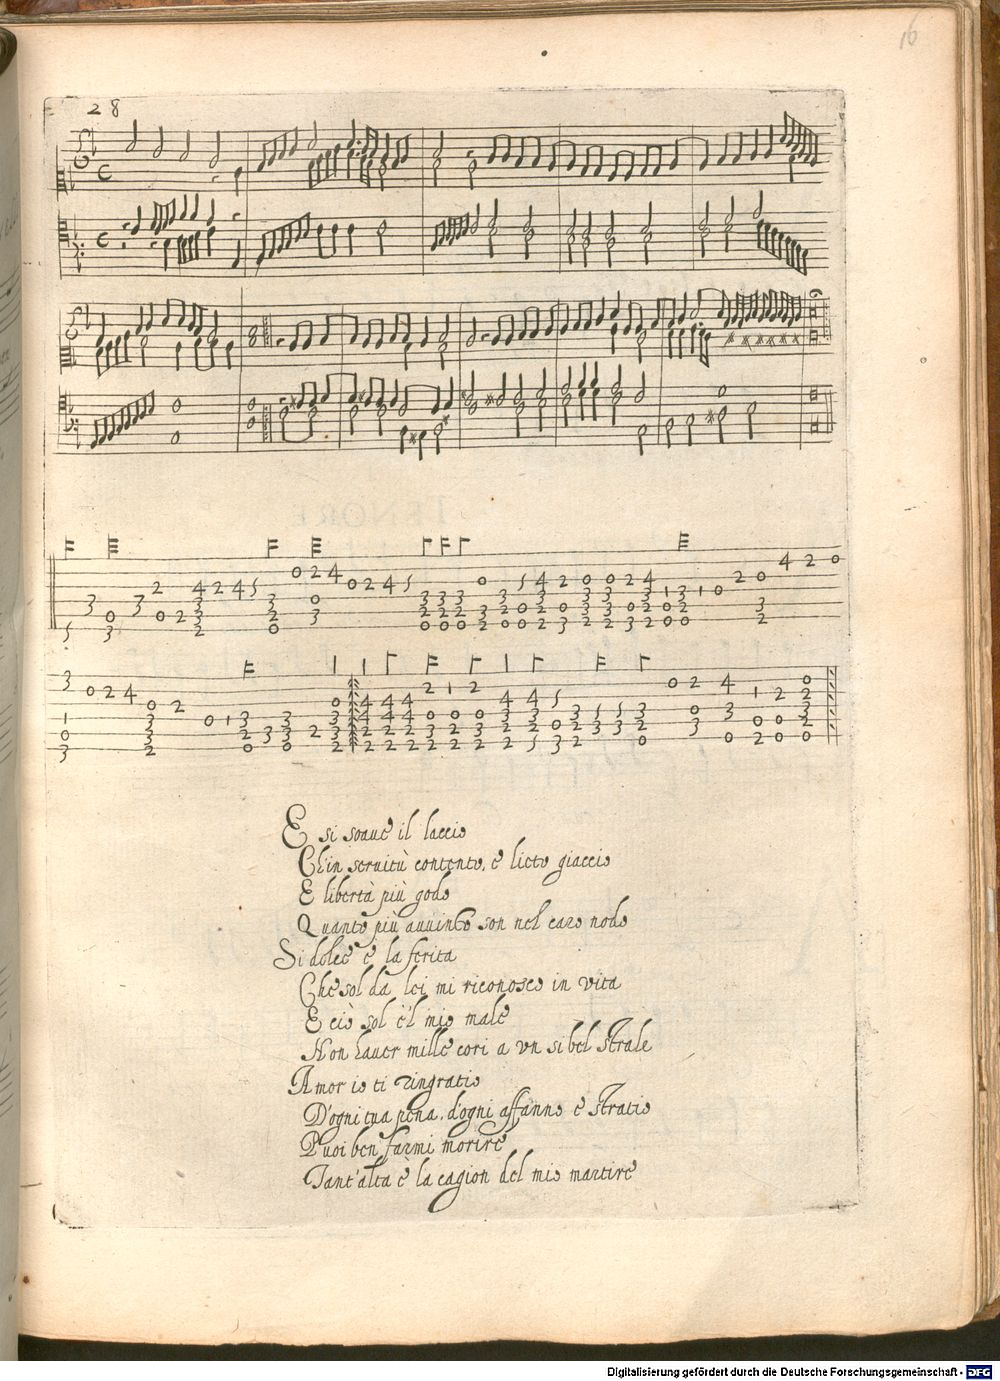 16
28
E si soaue il laccio
Ch'in seruitù contento, e lieto giaccio
E libertà più godo
Quanto più auuinto son nel caro nodo
Si dolce è la ferita
Che sol da lei mi riconosco in vita
E ciò sol è'l mio male
Non hauer mille cori a vn si bel strale
Amor io ti ringratio
D'ogni tua pena, d'ogni affanno e stratio
Puoi ben farmi morire
Tant'alta è la cagion del mio martire
Digitalisierung gefördert durch die Deutsche Forschungsgemeinschaft - DFG